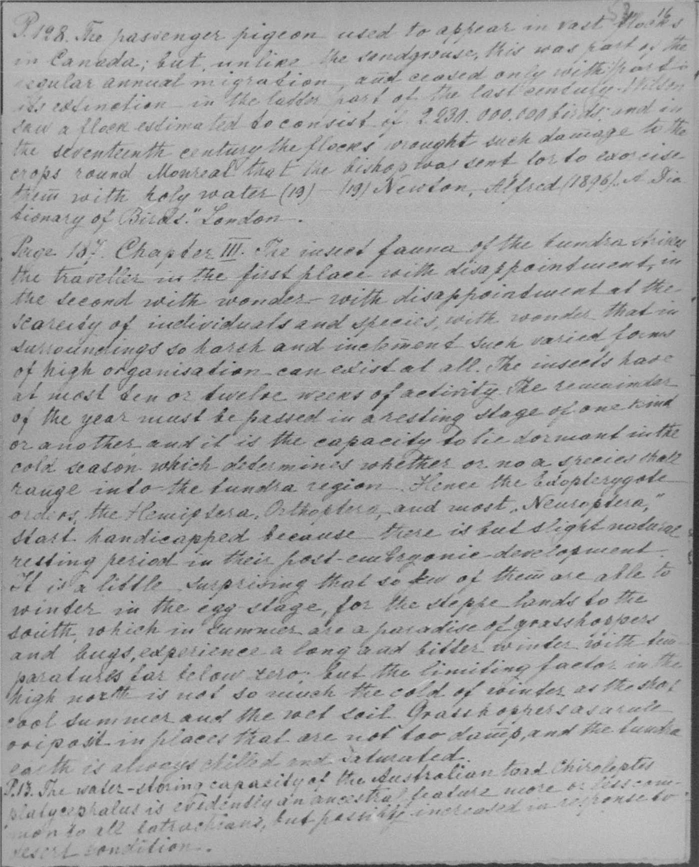 P. 128. The passenger pigeon used to appear in vast flocks
in Canada; but, unlike the sandgrouse, this was part of the
regular annual migration, and ceased only with
its extinction in the latter part of the last century. Wilson
saw a flock estimated to consist of 2.230.000.000 birds, and in
the seventeenth century the flocks wrought such damage to the
crops round Monreal that the bishop was sent for to exorcise
them with holy water (19) — (19) Newton, Alfred (1896). A Dic
tionary of Birds." London.
Page 187. Chapter III. The insect fauna of the tundra strikes
the traveller in the first place with disappointment, in
the second with wonder — with disappointment at the
scarcity of individuals and species, with wonder that in
surroundings so harsh and inclement such varied forms
of high organisation can exist at all. The insects have
at most ten or twelve weeks of activity. The remainder
of the year must be passed in a resting stage of one kind
or another and it is the capacity to lie dormant in the
cold season which determines whether or no a species shall
range into the tundra region. Hence the Exopterygote
orders, the Hemiptera, Orthoptera, and most „Neuroptera,"
start handicapped because there is but slight natural
resting period in their post-embryonic development.
It is a little surprising that so few of them are able to
winter in the egg stage, for the steppe lands to the
south, which in summer are a paradise of grasshoppers
and bugs, experience a long and bitter winter with tem
paratures far below zero. But the limiting factor in the
high north is not so much the cold of winter as the short
cool summer and the wet soil. Grasshoppers as a rule
ovipost in places that are not too damp, and the tundra
earth is always chilled and saturated.
P. 13. The water-storing capacity of the Australian toad Chiroleptes
platycephalus is evidently an ancestral feature more or less com
mon to all batrachians, but possibly increased in response to
desert condition.